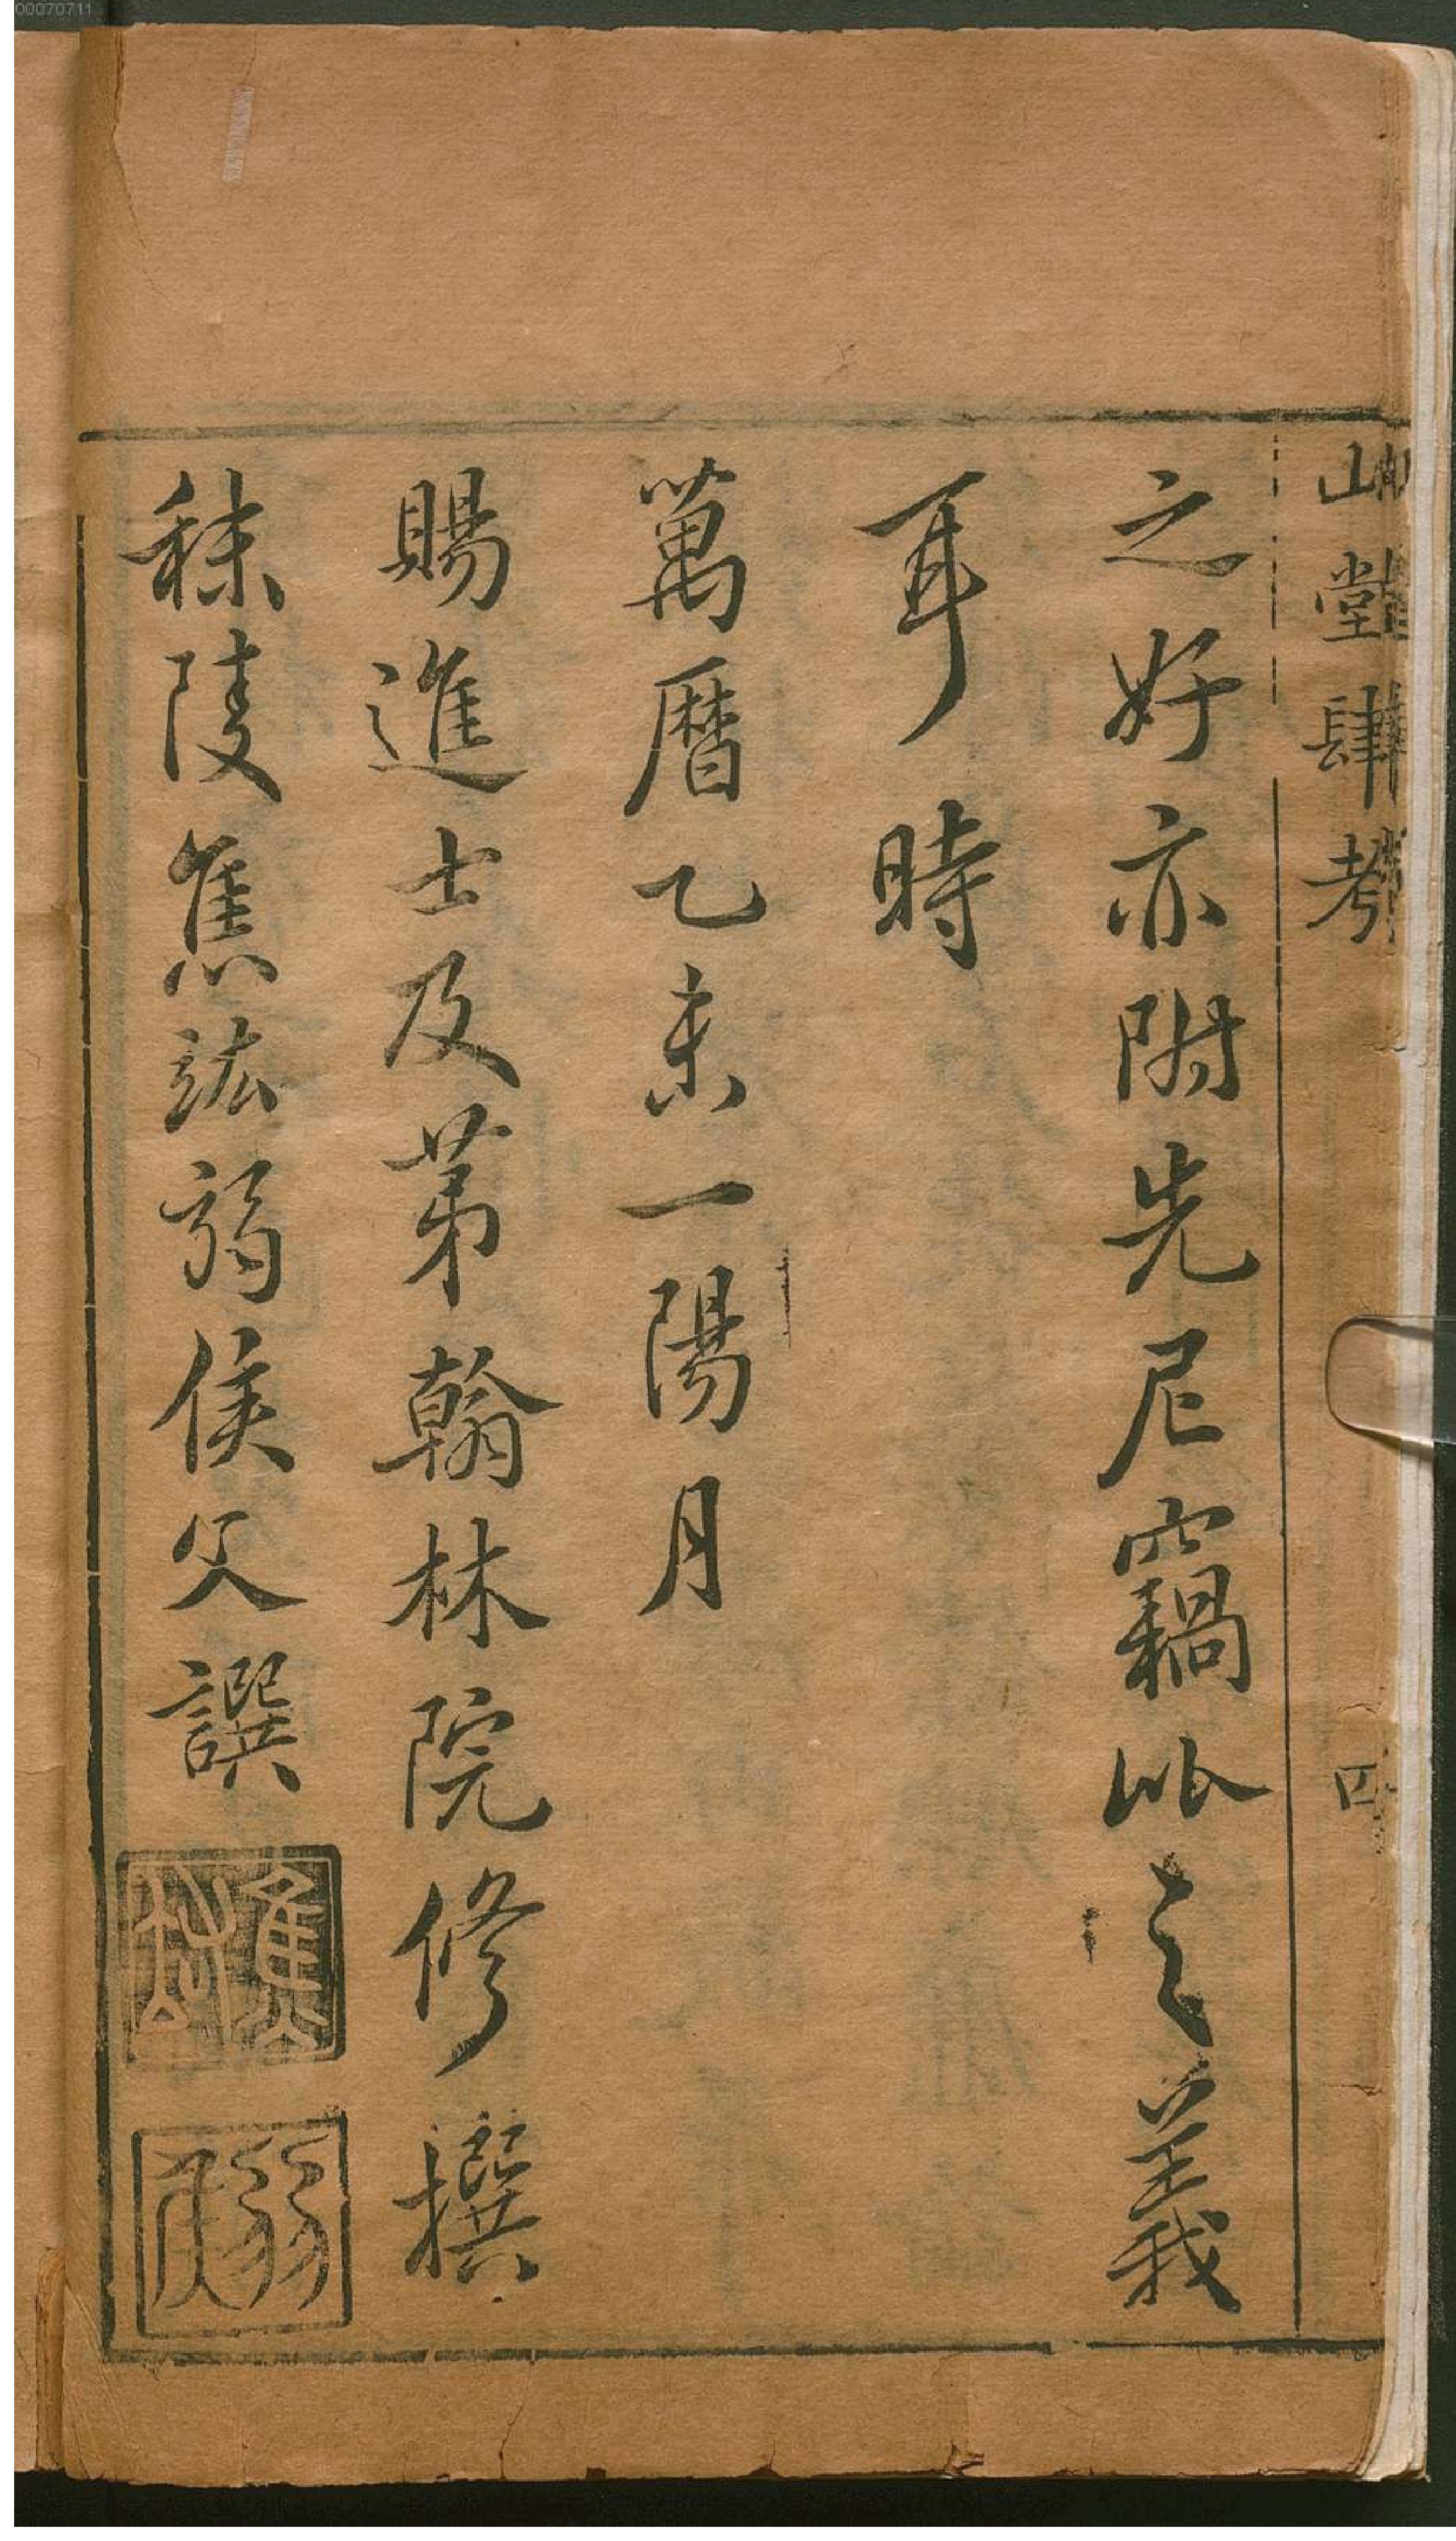 00070711
山堂肆考
四
之好亦附先尼竊比之義
耳時
萬曆乙未一陽月
賜進士及第翰林院修撰
秣陵焦竑弱侯父譔
焦竑
弱侯